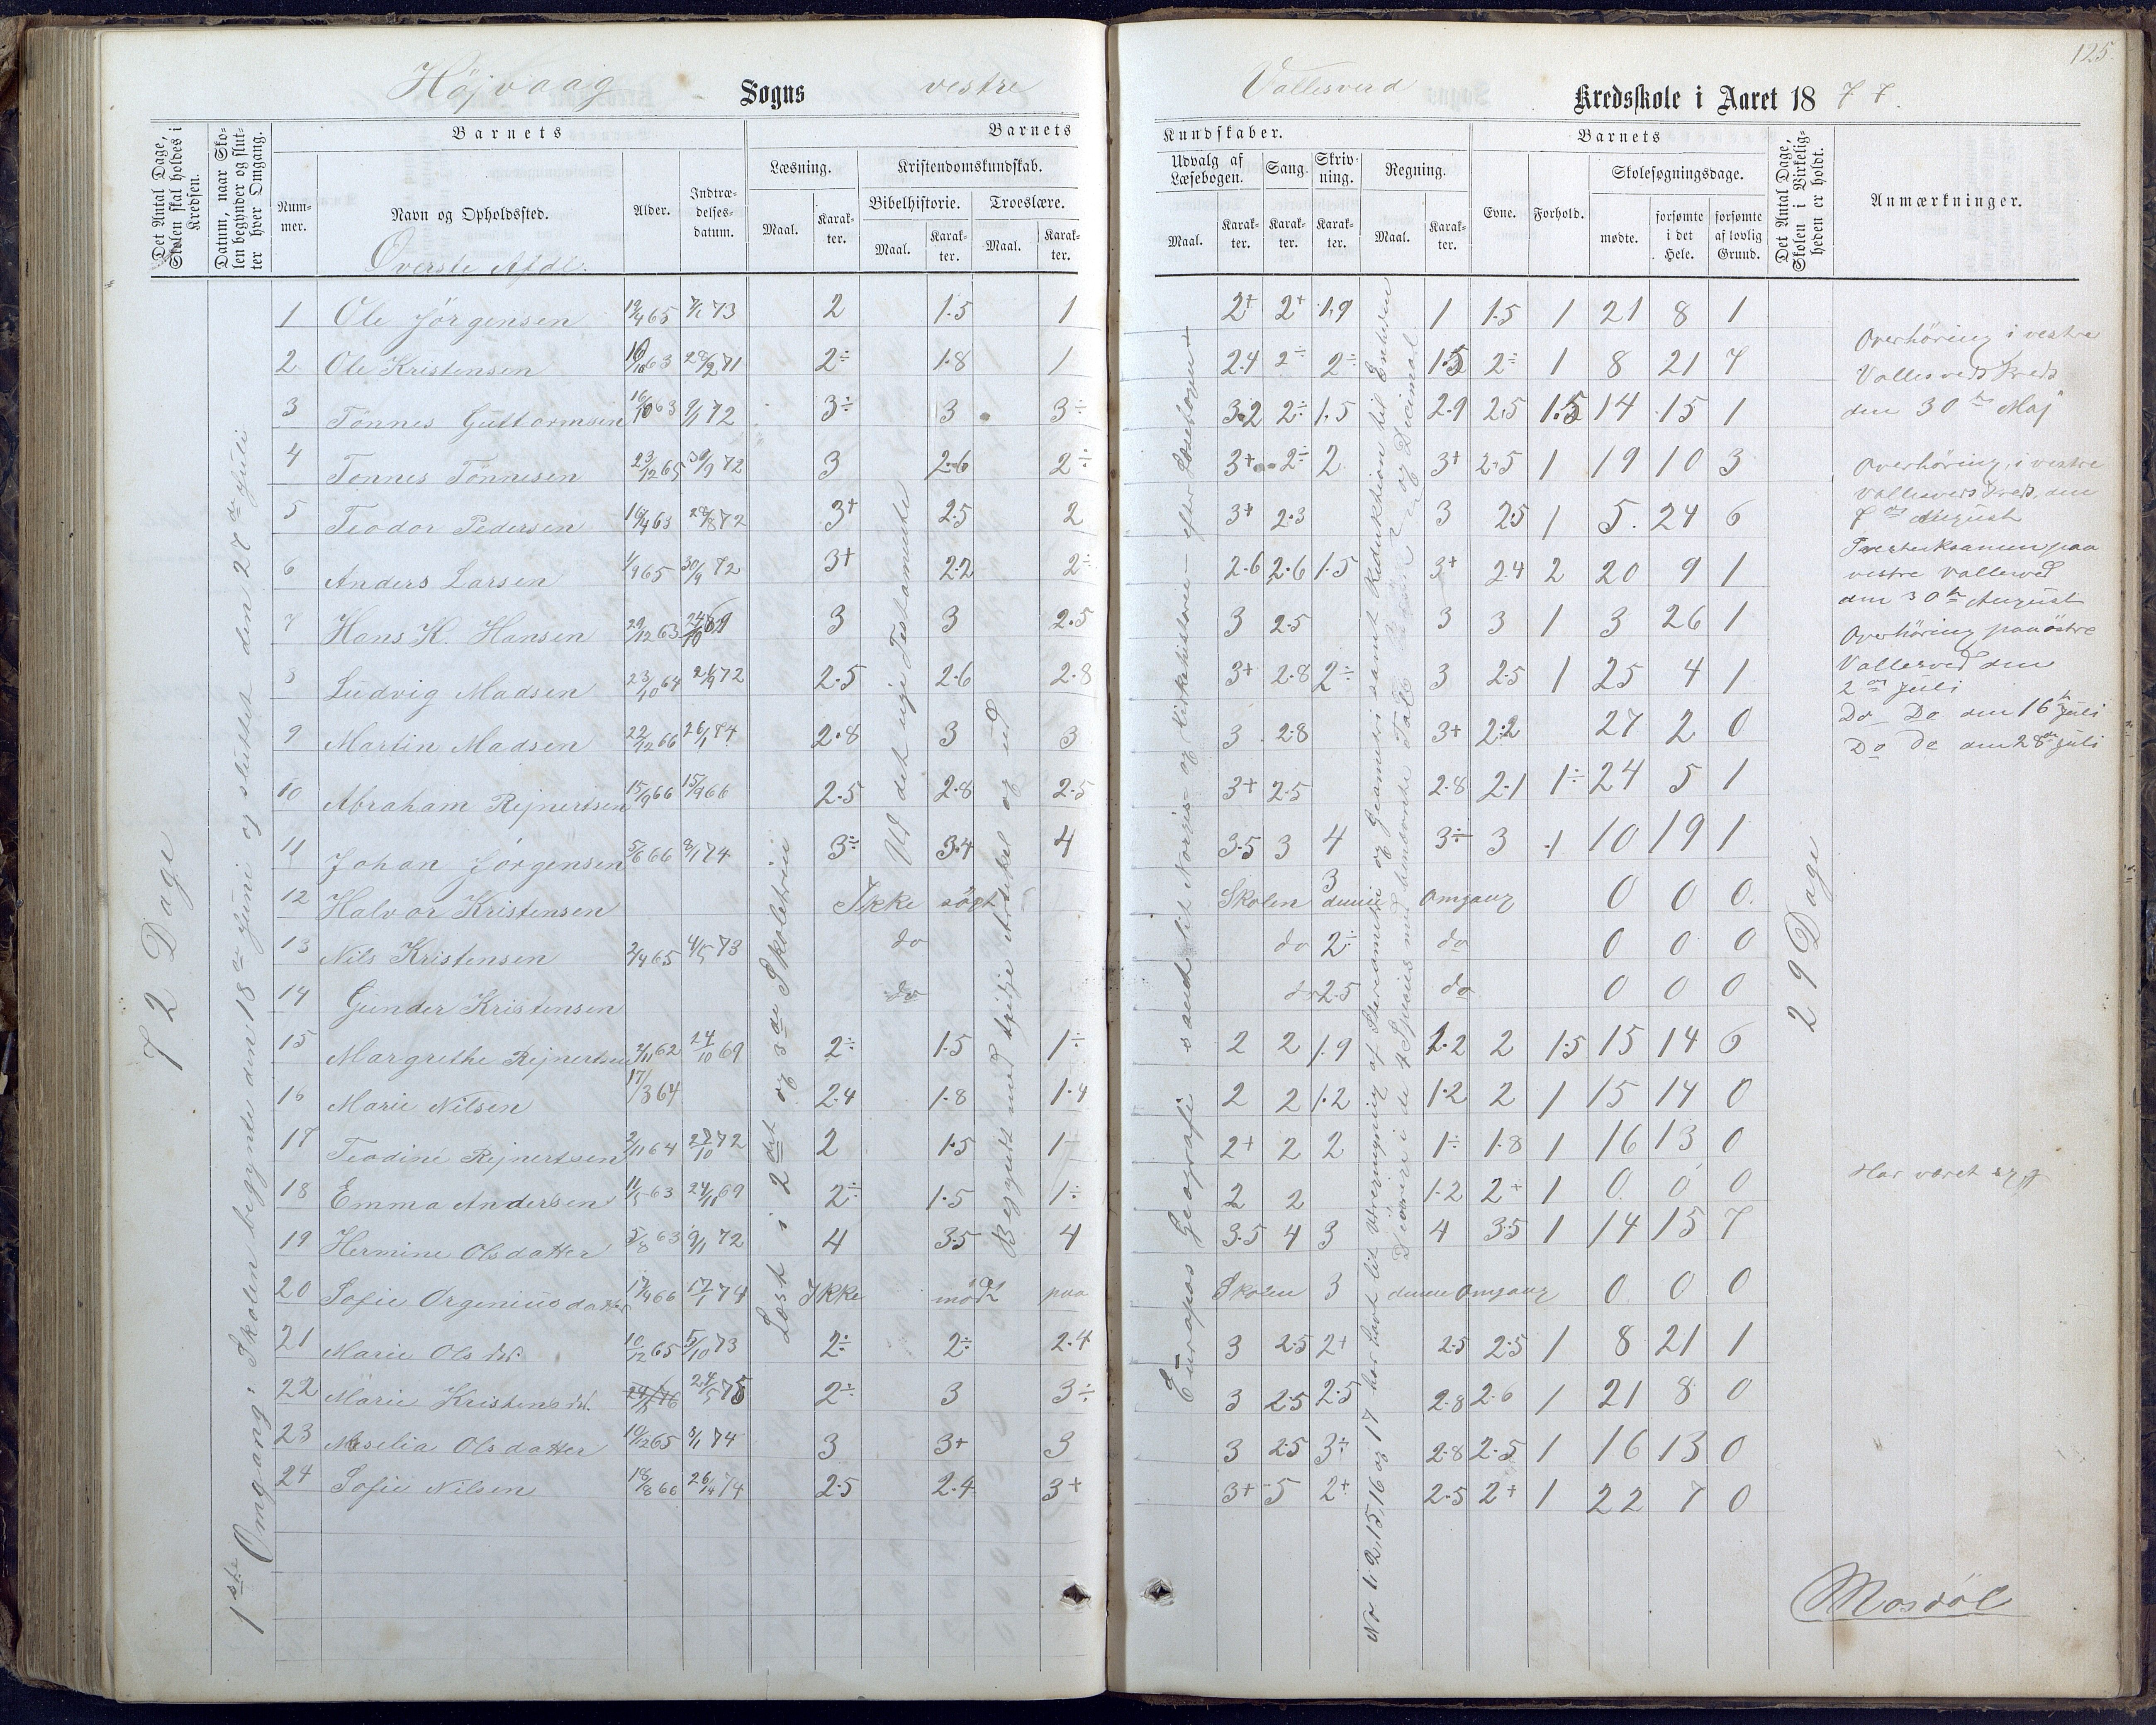 125.
Höjvaag Sogns vestre Vallesverd Kredsskole i Aaret 1877.
Det Antal Dage, Skolen skal holdes i Kredsen.
Datum, naar Skolen begynder og slutter hver Omgang.
Barnets
Nummer.
Navn og Opholdssted.
Alder.
Indtrædelsesdatum.
Barnets
Læsning.
Maal.
Karakter.
Kristendomskundskab.
Bibelhistorie.
Maal.
Karakter.
Troeslære.
Maal.
Karakter.
Kundskaber.
Udvalg af Læsebogen.
Maal.
Karakter.
Sang.
Karakter.
Skrivning.
Karakter.
Regning.
Maal.
Karakter.
Barnets
Evne.
Forhold.
Skolesøgningsdage.
mødte.
forsømte i det Hele.
forsømte af lovlig Grund.
Det Antal Dage, Skolen i Virkeligheden er holdt.
Anmærkninger.
Överste Afdl.
72 Dage
1ste Omgang: Skolen begyndte den 18de Juni og sluttet den 27de Juli
Læst i 2det og 3die Skoletrin
Ud det nye Testamente
Begyndt med tredje Artikel og ud
Europas Geografi samt lit Norges- og Kirkehistorie - efter Læsebogen
No 1, 2, 15, 16 og 17 har havt lit
29 Dage
1 Ole Jörgensen 19/4 65 7/1 73 2 1.5 1 2+ 2+ 1.9 1 1.5 1 21 8 1
2 Ole Kristensen 63 28/2 71 2÷ 1.8 1 2.4 2÷ 2÷ 1.5 2÷ 1 8 21 7
3 Tönnes Guttormsen 16/10 63 9/1 72 3÷ 3 3÷ 3.2 2÷ 1.5 2.9 2.5 1.5 14 15 1
4 Tönnes Tönnesen 23/12 65 30/9 72 3 2.6 2÷ 3+ 2÷ 2 3+ 2.5 1 19 10 3
5 Teodor Pedersen 16/4 63 28/8 72 3+ 2.5 2 3+ 2.3 3 2.5 1 5. 24 6
6 Anders Larsen 1/9 65 30/9 72 3+ 2.2 2÷ 2.6 2.6 1.5 3+ 2.4 2 20 9 1
7 Hans K. Hansen 29/12 63 24/10 69 3 3 2.5 3 2.5 3 3 1 3 26 1
8 Ludvig Madsen 23/10 64 72 2.5 2.6 2.8 3+ 2.8 2÷ 3 2.5 1 25 4 1
9 Martin Madsen 22/12 66 26/1 74 2.8 3 3 3 2.8 3+ 2.2 27 2 0
10 Abraham Rejnertsen 15/9 66 15/9 66 2.5 2.8 2.5 3+ 2.5 2.8 2.1 1÷ 24 5 1
11 Johan Jörgensen 5/6 66 8/1 74 3÷ 3.4 4 3.5 3 4 3÷ 3 1 10 19 1
12 Halvor Kristensen Ikke sögt Skolen 3 denne Omgang 0 0 0.
13 Nils Kristensen 2/4 65 4/5 73 do do 2÷ do 0 0 0
14 Gunder Kristensen do do 2.5 do 0 0 0
15 Margrethe Rejnertsen 2/11 62 24/10 69 2÷ 1.5 1÷ 2 2 1.9 1.2 2 1.5 15 14 6
16 Marie Nilsen 17/3 64 2.4 1.8 1.4 2 2 1.2 1.2 2 1 15 14 0
17 Teodine Rejnertsen 2/11 64 72 2 1.5 1÷ 2+ 2 2 1÷ 1.8 1 16 13 0
18 Emma Andersen 11/5 63 24/10 69 2÷ 1.5 1÷ 2 2 1.2 2+ 1 0 0 0 Har været syg
19 Hermine Olsdatter 5/8 63 9/1 72 4 3.5 4 3.5 4 3 4 3.5 1 14 15 7
20 Sofie Orgeniusdatter 17/4 66 17/1 74 Ikke mødt paa Skolen 3 denne Omgang 0 0 0
21 Marie Olsdt. 10/12 65 5/10 73 2÷ 2÷ 2.4 3 2.5 2+ 2.5 2.5 1 8 21 1
22 Marie Kristensdt. 24/5 75 2÷ 3 3÷ 3 2.5 2.5 2.8 2.6 1 21 8 0
23 Meselia Olsdatter 19/12 65 8/1 74 3 3+ 3 3 2.5 3÷ 2.8 2.5 1 16 13 0
24 Sofie Nilsen 18/8 66 26/4 74 2.5 2.4 3+ 3+ 5 2+ 2.5 2+ 1 22 7 0
Overhöring i vestre
Vallesverds Kreds
den 30te Maj
Overhöring i vestre
Vallesverds Kreds, den
7de August
paa
vestre Vallesved
den 30te August
Overhöring paa östre
Vallesved den
2den Juli
Do Do den 16te Juli
Do Do den 28de Juli
Mosdöl